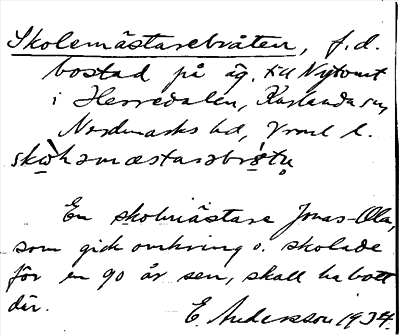 Skolemästarebråten, f.d.
bostad på äg. till Nytomt
i Herredalen, Karlanda sn,
Nordmarks hd, Vrml. l.
En skolmästare Jonas-Ola,
som gick omkring o. skolade
för en 90 år sen, skall ha bott
där.
E. Andersson 1934.